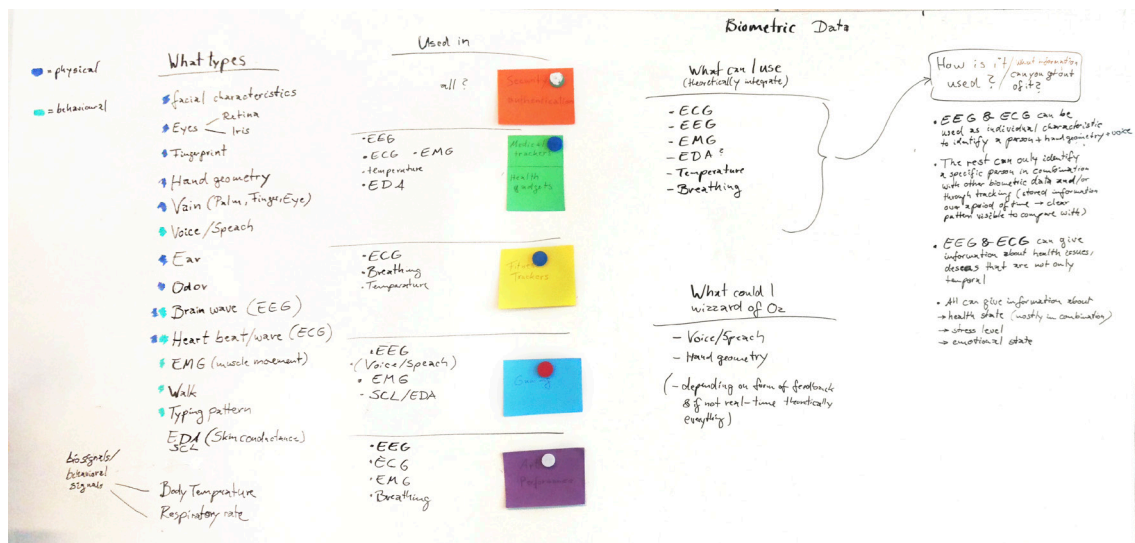 Biometric Data
= physical
= behavioural
What types
facial characteristics
Eyes
Retina
Iris
Fingerprint
Hand geometry
Vain (Palm, Finger, Eye)
Voice/Speach
Ear
Odor
Brain wave (EEG)
Heart beat/wave (ECG)
EMG (muscle movement)
Walk
Typing pattern
EDA (Skin conductance)
SCL
biosignals/
behavioral
signals
Body Temperature
Respiratory rate
Used in
all?
Security
Authentication
• EEG
• ECG - EMG
- temperature
• EDA
Medical
trackers
Health
gadgets
• ECG
• Breathing
• Temperature
Fitness
Trackers
• EEG
• (Voice/Speach)
• EMG
- SCL/EDA
Gaming
• EEG
• ECG
• EMG
• Breathing
Performance
What can I use
(theoretically integrate)
- ECG
- EEG
- EMG
- EDA?
- Temperature
- Breathing
What could I
wizzard of Oz
- Voice/Speach
- Hand geometry
(- depending on form of feedback
& if not real-time theoretically
everything)
How is it / What information
used? / can you get out
of it?
• EEG & ECG can be
used as individual characteristic
to identify a person + hand geometry + voice
• The rest can only identify
a specific person in combination
with other biometric data and/or
through tracking (stored information
over a period of time → clear
pattern visible to compare with)
• EEG & ECG can give
information about health issues,
deseas that are not only
temporal
• All can give information about
→ health state (mostly in combination)
→ stress level
→ emotional state